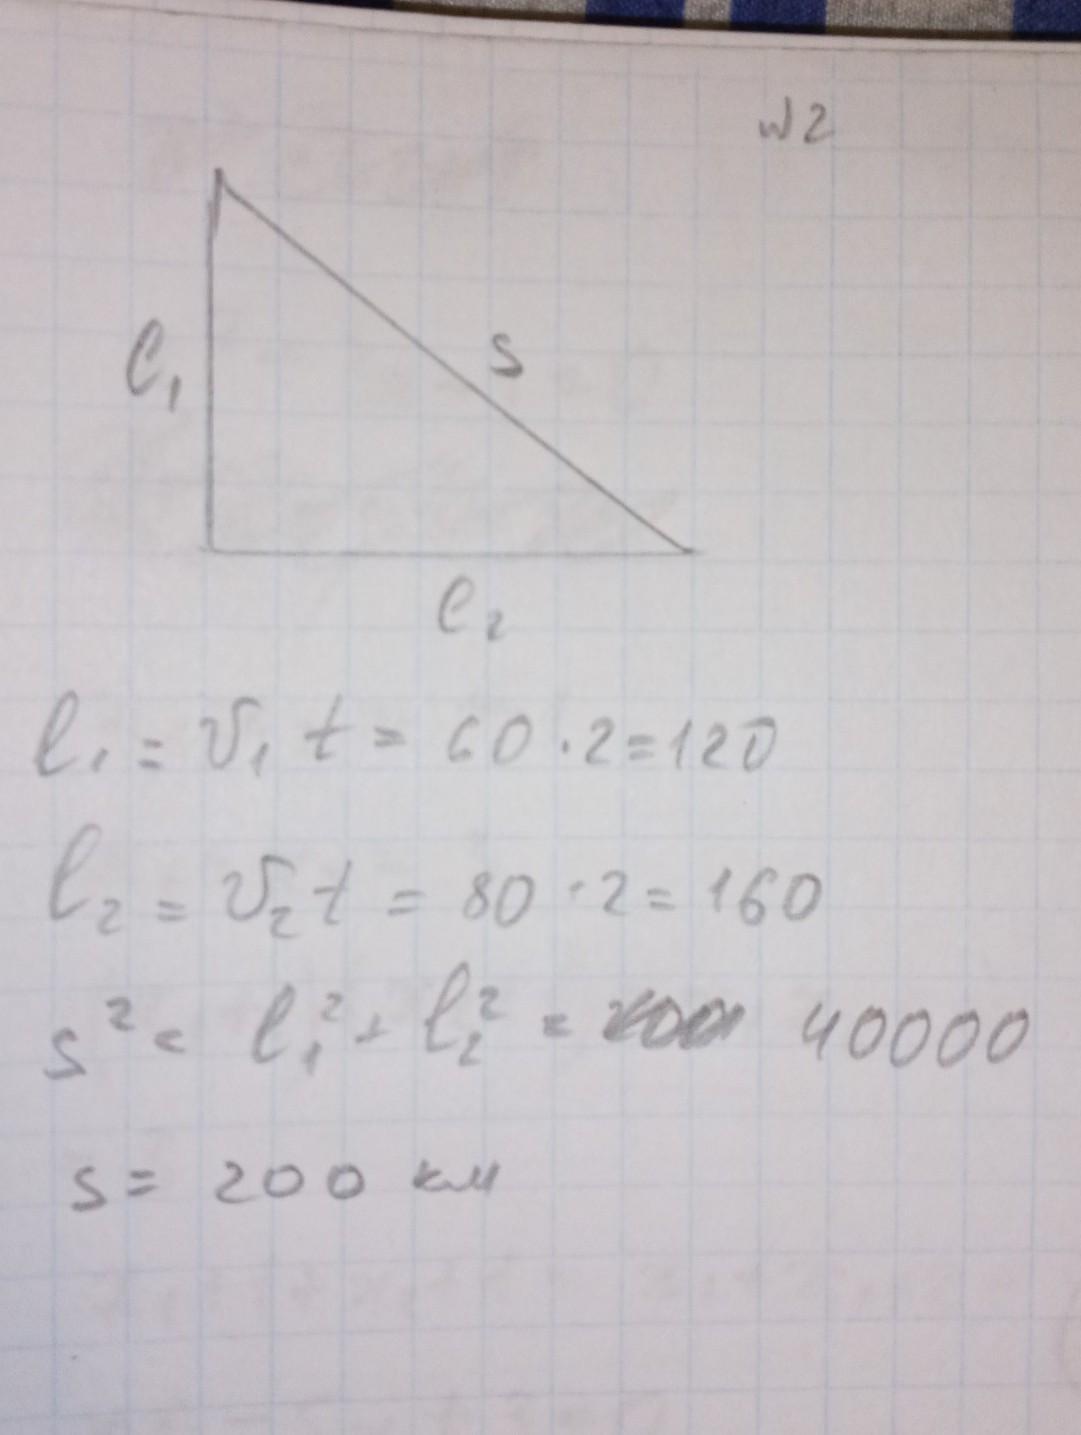 №2
l₁
s
l₂
l₁ = v₁ t = 60 · 2 = 120
l₂ = v₂ t = 80 · 2 = 160
s² = l₁² + l₂² = 40000
s = 200 км